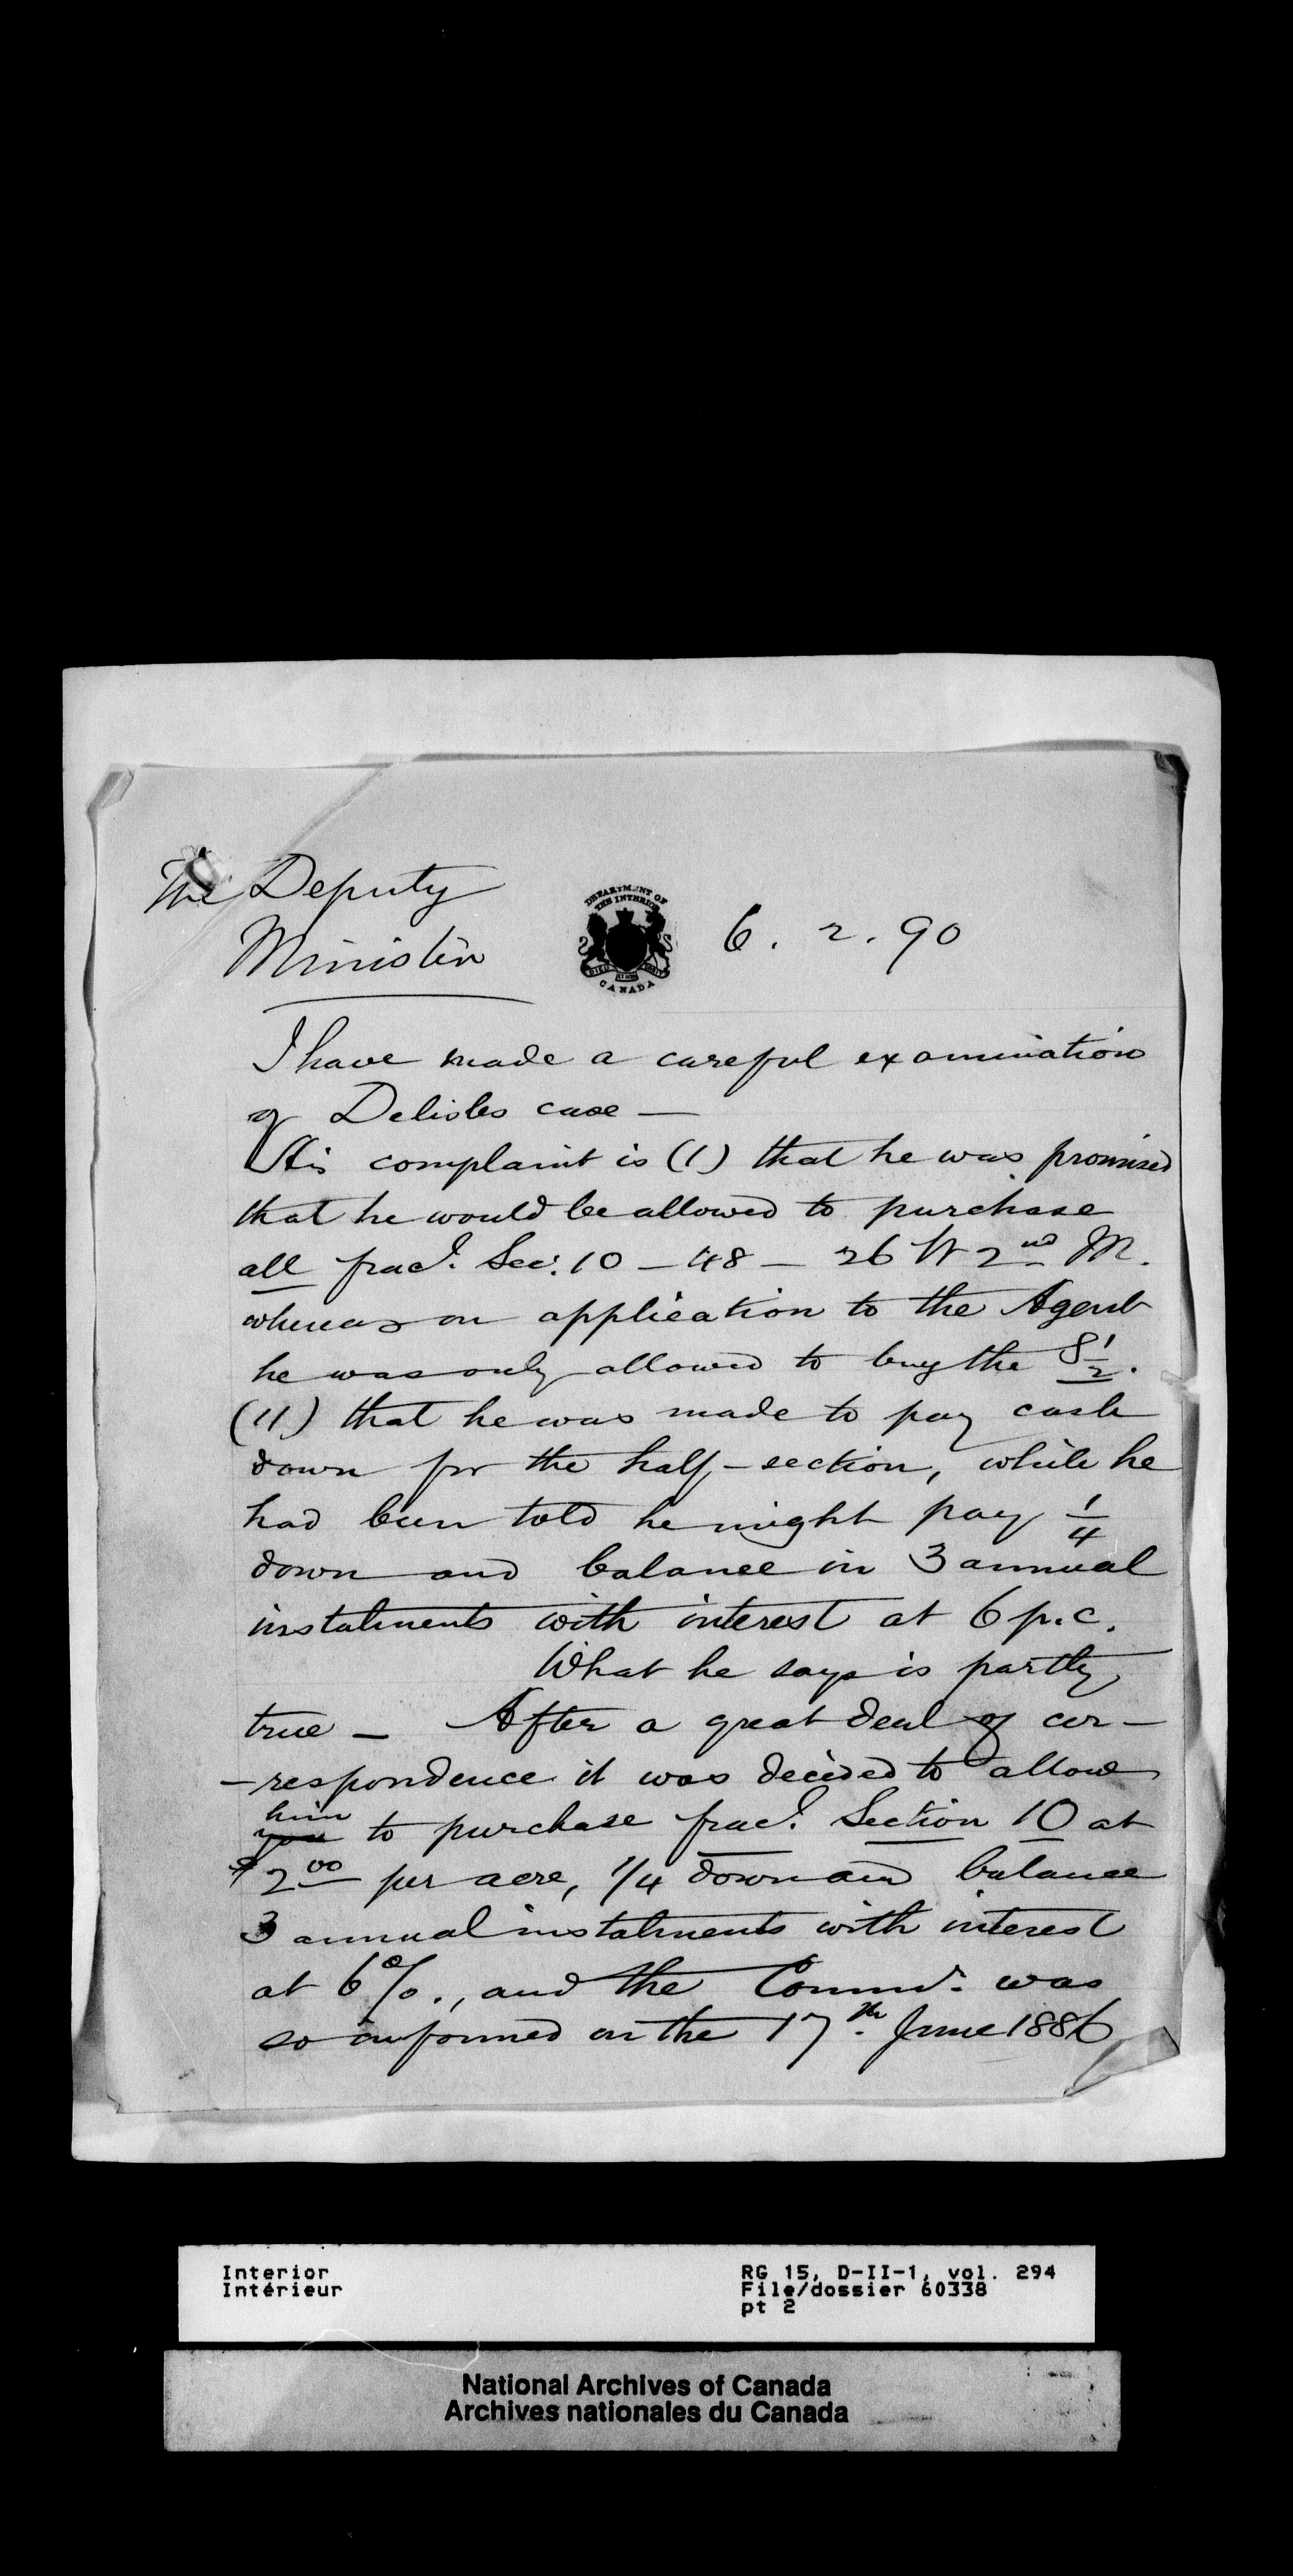 The Deputy
Minister
DEPARTMENT OF
THE INTERIOR
CANADA
6. 2. 90
I have made a careful examination
of Delisles case —
His complaint is (1) that he was promised
that he would be allowed to purchase
all frac'l. Sec: 10 — 48 — 26 W 2nd M.
whereas on application to the Agent
he was only allowed to buy the S 1/2.
(11) that he was made to pay cash
down for the half-section, while he
had been told he might pay 1/4
down and balance in 3 annual
instalments with interest at 6 p.c.
What he says is partly
true — After a great deal of cor-
-respondence it was decided to allow
him
you to purchase frac'l. Section 10 at
$2.00 per acre, 1/4 down and balance
3 annual instalments with interest
at 6%., and the Commr. was
so informed on the 17th. June 1886
Interior
Intérieur
RG 15, D-II-1, vol. 294
File/dossier 60338
pt 2
National Archives of Canada
Archives nationales du Canada